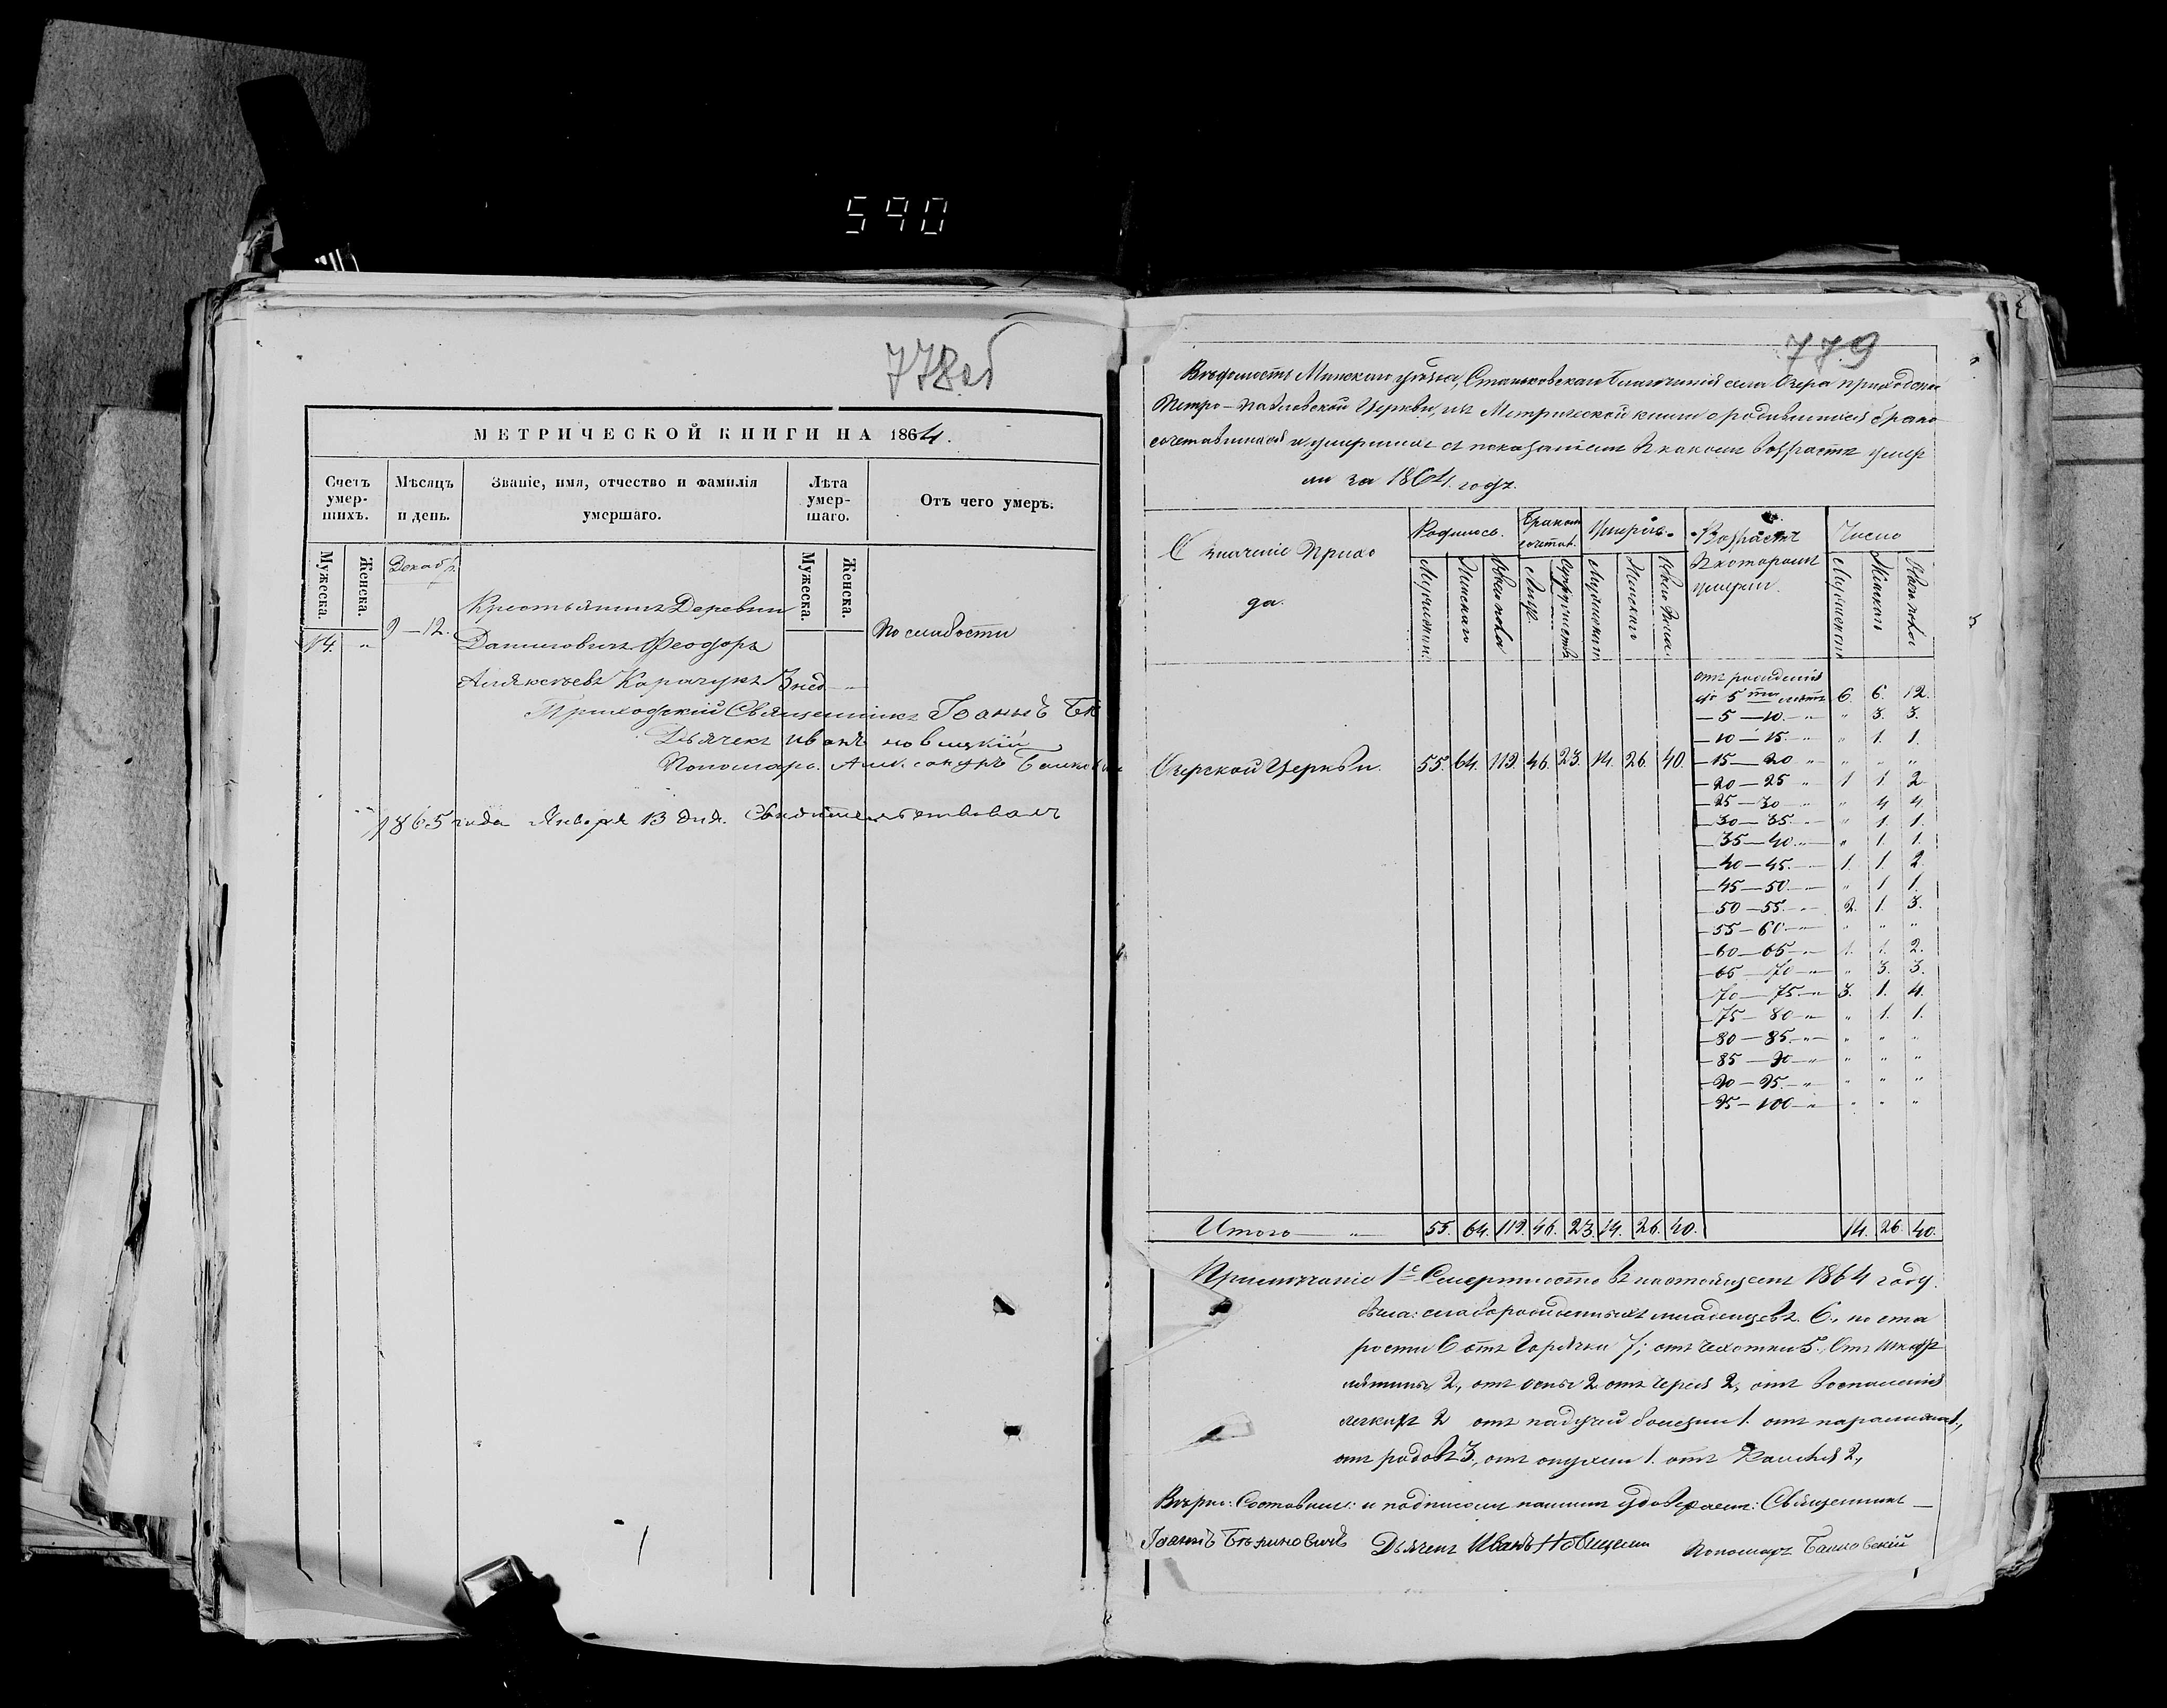 590
778об
МЕТРИЧЕСКОЙ КНИГИ НА 1864.
Счетъ умер-шихъ. Мѣсяцъ и день. Званіе, имя, отчество и фамилія умершаго. Лѣта умер-шаго. Отъ чего умеръ.
Мужеска. Женска. Декабр. Мужеска. Женска.
Крестьянинъ Деревни
14. " 9—12. Даниловичъ Феодоръ По слабости
Алексѣевъ Карачукъ 3 нед "
Приходскій Священникъ Іоаннъ
Дьячекъ Иванъ Новицкій
Пономарь Александръ
1865 года Января 13 дня. Свидѣтельствовалъ
779
Вѣдомость Минскаго уѣзда, Станьковскаго благочинія села Озера приходской
Петро-Павловской Церкви, изъ Метрической книги о родившихся брако
сочетавшихся и умершихъ съ показаніемъ въ какомъ возрастѣ умер
ли за 1864 годъ.
Означеніе Прихо да. Родилось. Бракомъ сочетав. Умерло. Возрастъ въ которомъ умерли. Число
Мужескаго Женскаго Обоего пола Лицъ. Супружествъ Мужескаго Женскаго Обоего Пола Мужескаго Женскаго Обоего пола
отъ рожденія
до 5 ти лѣтъ 6. 6. 12.
— 5 — 10 — " " 3. 3.
— 10 — 15. — " " 1. 1.
Озерской Церкви. 55. 64. 119. 46. 23. 14. 26. 40. — 15 — 20 " " " "
— 20 — 25 " 1 1. 2
— 25 — 30 " " 4 4.
— 30 — 35. " " 1. 1.
35 — 40 " " 1. 1.
— 40 — 45. 1. 1. 2.
— 45 — 50 " " 1 1.
— 50 — 55. " 2. 1. 3.
— 55 — 60 " " " "
— 60 — 65 " 1. 1. 2.
— 65 — 70 " " 3. 3.
— 70 — 75 " 3. 1. 4.
— 75 — 80 " " 1. 1.
— 80 — 85. " " " "
— 85 — 90 " " " "
— 90 — 95. " " " "
— 95 — 100 " " " "
Итого " 55. 64. 119. 46. 23. 14. 26. 40. 14. 26. 40.
Примѣчаніе 1е Смертность въ настоящемъ 1864 году.
была: слаборожденныхъ младенцевъ 6., по ста
рости 6 отъ Горячки 7; отъ чахотки 5. Отъ Шкар
лятины 2, отъ оспы 2 отъ 2, отъ воспаленія
легкихъ 2 отъ падучей болезни 1. отъ паралича 1.,
отъ родовъ 3, отъ опухли 1. отъ Кашля 2,
Вѣрно: Составили: и подписомъ нашимъ удовѣраемъ: Священникъ —
Іоаннъ Дьячекъ Иванъ Новицкій Пономарь